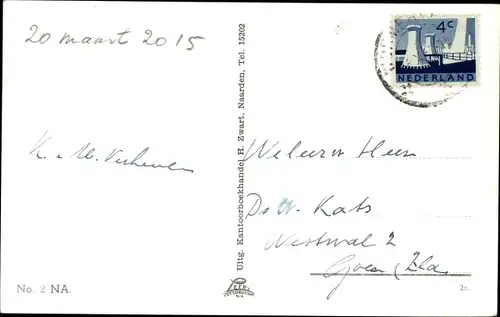 20 maart 2015
4c
NEDERLAND
K. M. Verheul
Uitg. Kantoorboekhandel H. Zwart, Naarden, Tel. 15202
Weleerw Heer
Ds. W. Kats
Westwal 2
Goes (Zld.
No. 2 NA.